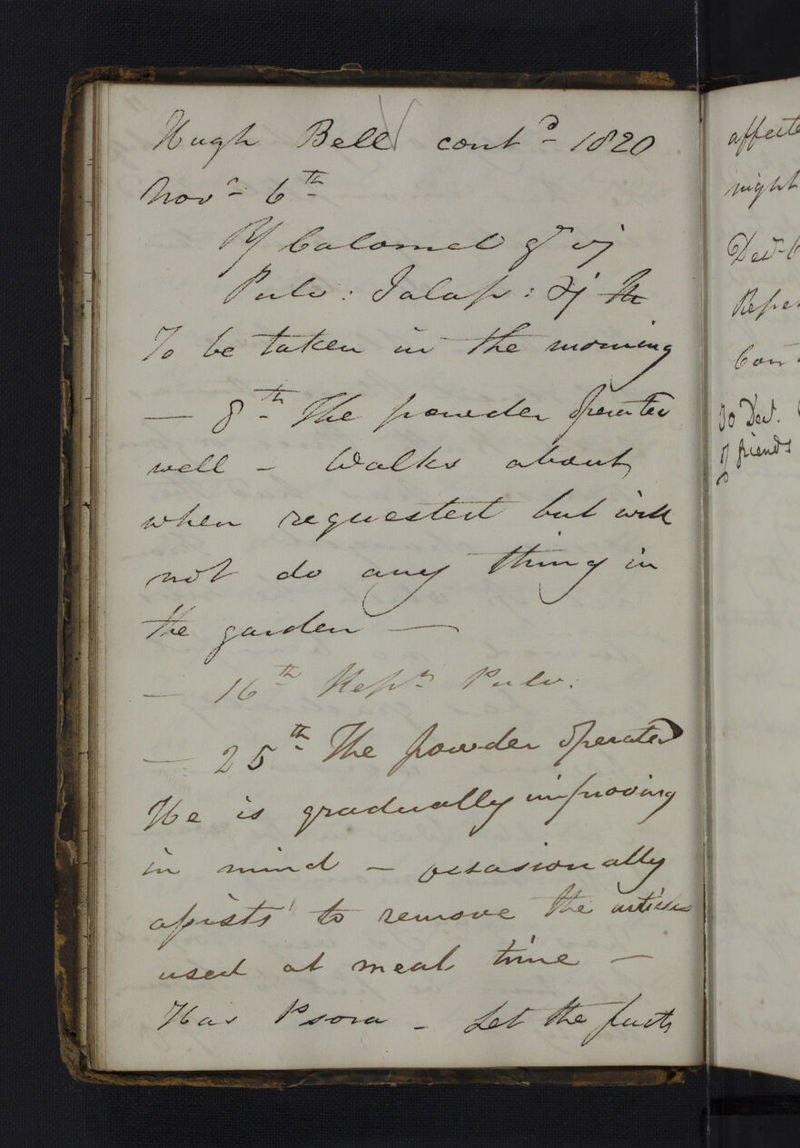 Hugh Bell contd 1820
Novr 6th
℞ Calomel gr vj
Pulv: Jalap: ʒj
To be taken in the morning
— 8th The powder operated
well – Walks about
when requested but will
not do any thing in
the garden —
— 16th Rept Pulv.
— 25th The powder operated
He is gradually improving
in mind – occasionally
assists to remove the articles
used at meal time —
Has Psora – Let the parts
affecte
night
Decr 6
Repe
Con
30 Decr.
friends